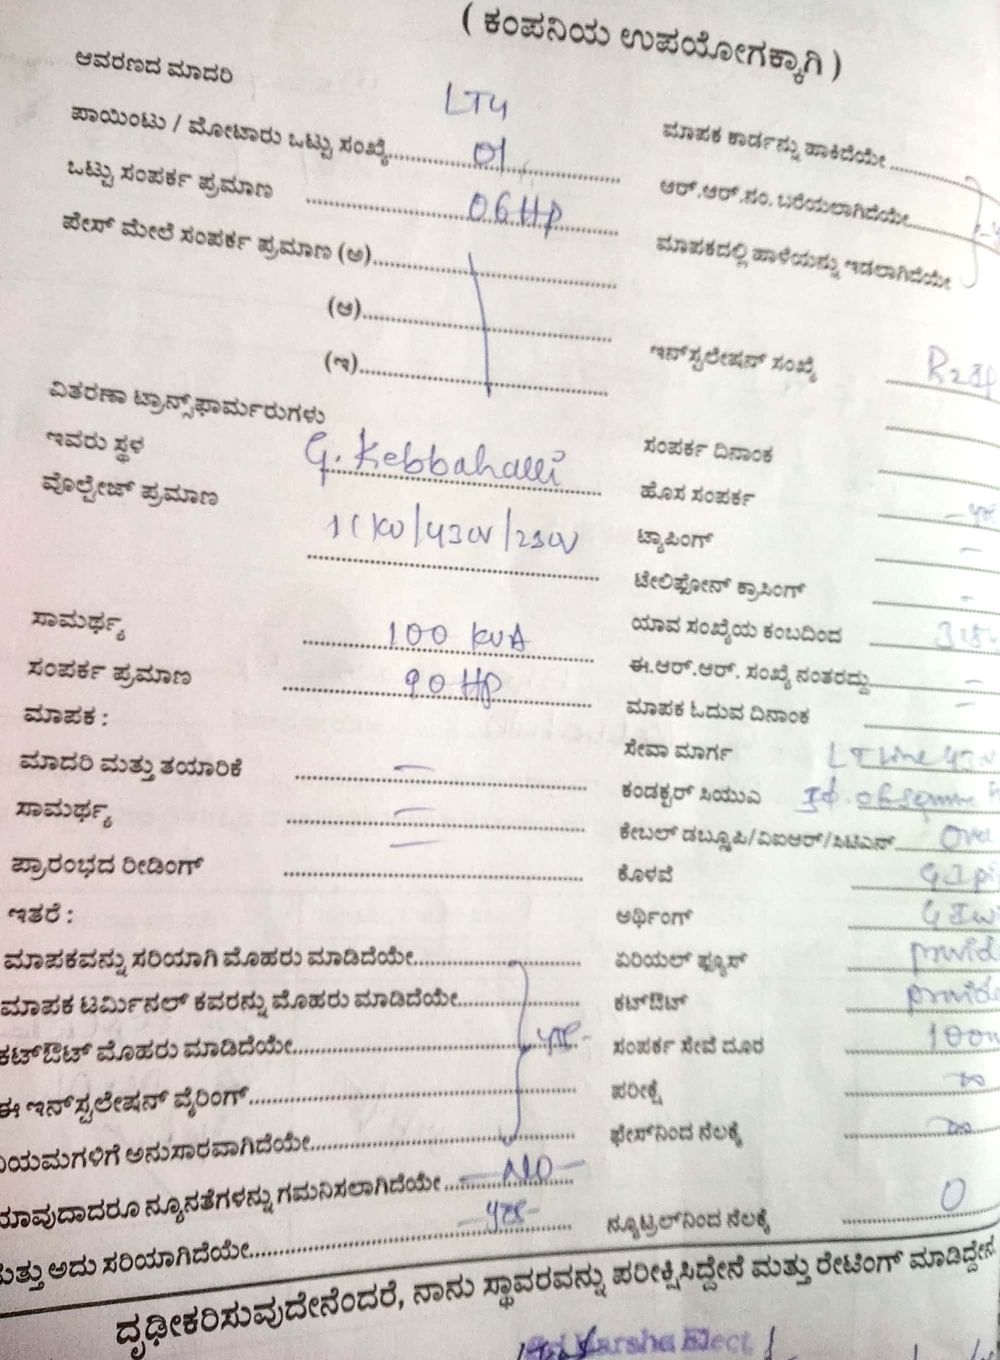 ( ಕಂಪನಿಯ ಉಪಯೋಗಕ್ಕಾಗಿ )
ಆವರಣದ ಮಾದರಿ LT4
ಪಾಯಿಂಟು / ಮೋಟಾರು ಒಟ್ಟು ಸಂಖ್ಯೆ 01
ಒಟ್ಟು ಸಂಪರ್ಕ ಪ್ರಮಾಣ 06 HP
ಪೇಸ್ ಮೇಲೆ ಸಂಪರ್ಕ ಪ್ರಮಾಣ (ಅ)
(ಆ)
(ಇ)
ವಿತರಣಾ ಟ್ರಾನ್ಸ್‌ಫಾರ್ಮರುಗಳು
ಇವರು ಸ್ಥಳ G. Kebbahalli
ವೊಲ್ಟೇಜ್ ಪ್ರಮಾಣ 11KV/430V/230V
ಸಾಮರ್ಥ್ಯ 100 KVA
ಸಂಪರ್ಕ ಪ್ರಮಾಣ 90 HP
ಮಾಪಕ :
ಮಾದರಿ ಮತ್ತು ತಯಾರಿಕೆ —
ಸಾಮರ್ಥ್ಯ —
ಪ್ರಾರಂಭದ ರೀಡಿಂಗ್ —
ಇತರೆ :
ಮಾಪಕವನ್ನು ಸರಿಯಾಗಿ ಮೊಹರು ಮಾಡಿದೆಯೇ
ಮಾಪಕ ಟರ್ಮಿನಲ್ ಕವರನ್ನು ಮೊಹರು ಮಾಡಿದೆಯೇ
ಕಟ್‌ಔಟ್ ಮೊಹರು ಮಾಡಿದೆಯೇ yes -
ಈ ಇನ್‌ಸ್ಟಲೇಷನ್ ವೈರಿಂಗ್
ನಿಯಮಗಳಿಗೆ ಅನುಸಾರವಾಗಿದೆಯೇ
ಯಾವುದಾದರೂ ನ್ಯೂನತೆಗಳನ್ನು ಗಮನಿಸಲಾಗಿದೆಯೇ — NO —
ಮತ್ತು ಅದು ಸರಿಯಾಗಿದೆಯೇ — yes -
ಮಾಪಕ ಕಾರ್ಡನ್ನು ಹಾಕಿದೆಯೇ
ಆರ್.ಆರ್.ಸಂ. ಬರೆಯಲಾಗಿದೆಯೇ
ಮಾಪಕದಲ್ಲಿ ಹಾಳೆಯನ್ನು ಇಡಲಾಗಿದೆಯೇ
ಇನ್‌ಸ್ಟಲೇಷನ್ ಸಂಖ್ಯೆ
ಸಂಪರ್ಕ ದಿನಾಂಕ
ಹೊಸ ಸಂಪರ್ಕ
ಟ್ಯಾಪಿಂಗ್ —
ಟೇಲಿಫೋನ್ ಕ್ರಾಸಿಂಗ್ -
ಯಾವ ಸಂಖ್ಯೆಯ ಕಂಬದಿಂದ
ಈ.ಆರ್.ಆರ್. ಸಂಖ್ಯೆ ನಂತರದ್ದು —
ಮಾಪಕ ಓದುವ ದಿನಾಂಕ —
ಸೇವಾ ಮಾರ್ಗ LT Line
ಕಂಡಕ್ಟರ್ ಸಿಯುಎ
ಕೇಬಲ್ ಡಬ್ಲೂಪಿ/ವಿಐಆರ್/ಸಿಟಿಎಸ್
ಕೊಳವೆ GI
ಅರ್ಥಿಂಗ್ GI
ಏರಿಯಲ್ ಫ್ಯೂಸ್
ಕಟ್‌ಔಟ್
ಸಂಪರ್ಕ ಸೇವೆ ದೂರ
ಪರೀಕ್ಷೆ ∞
ಫೇಸ್‌ನಿಂದ ನೆಲಕ್ಕೆ ∞
ನ್ಯೂಟ್ರಲ್‌ನಿಂದ ನೆಲಕ್ಕೆ 0
ದೃಢೀಕರಿಸುವುದೇನೆಂದರೆ, ನಾನು ಸ್ಥಾವರವನ್ನು ಪರೀಕ್ಷಿಸಿದ್ದೇನೆ ಮತ್ತು ರೇಟಿಂಗ್ ಮಾಡಿದ್ದೇನೆ
Harsha Elect